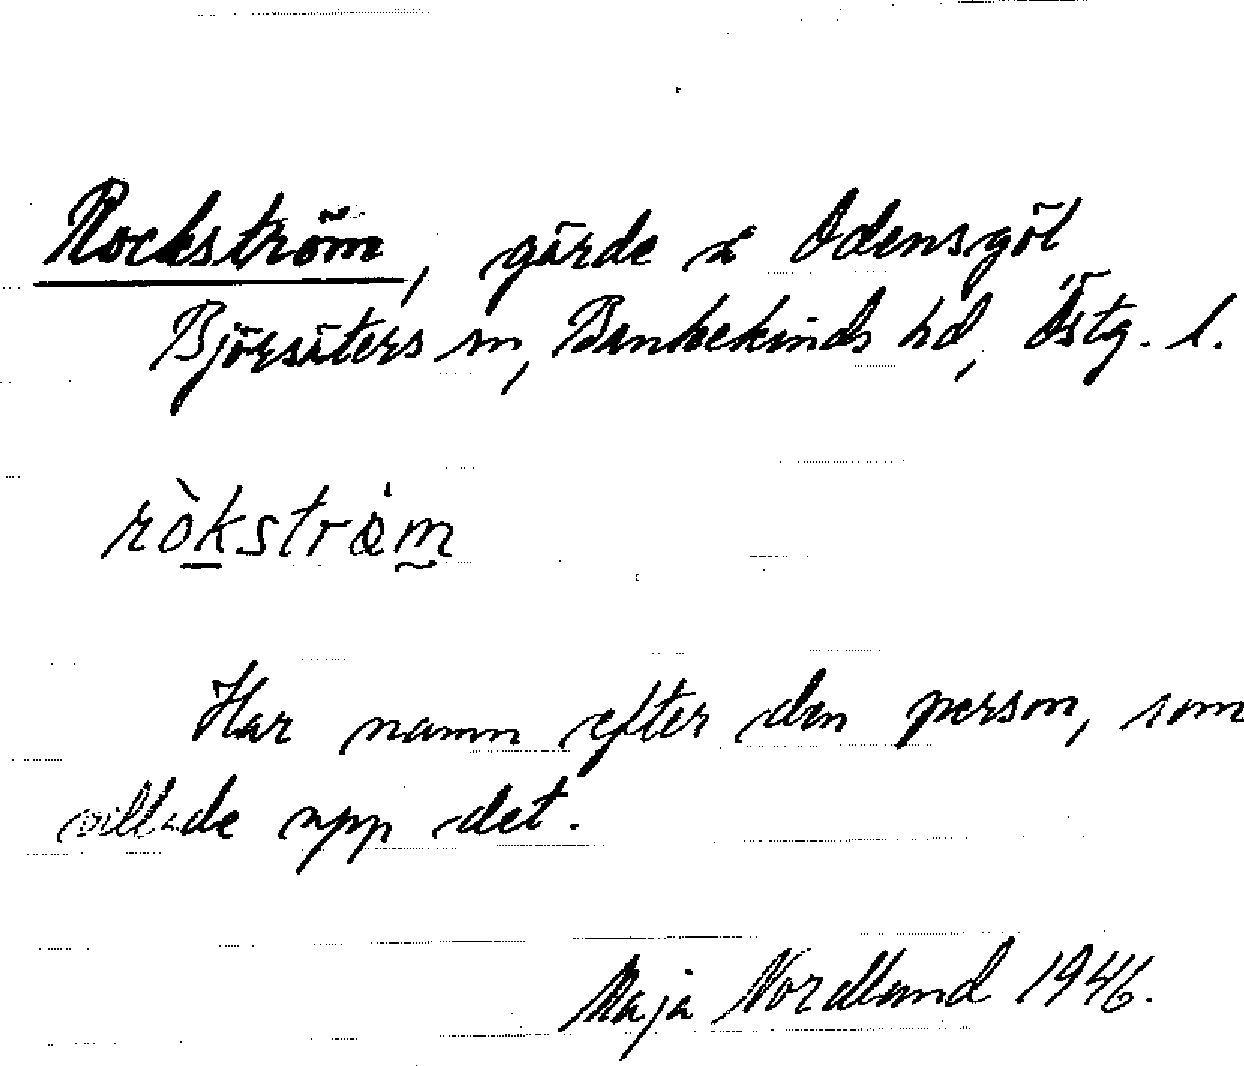 Rockström, gärde i Odensgöl
Björsäters sn, Bankekinds hd, Östg. l.
ròkström
Har namn efter den person, som
odlade upp det.
Maja Nordlund 1946.